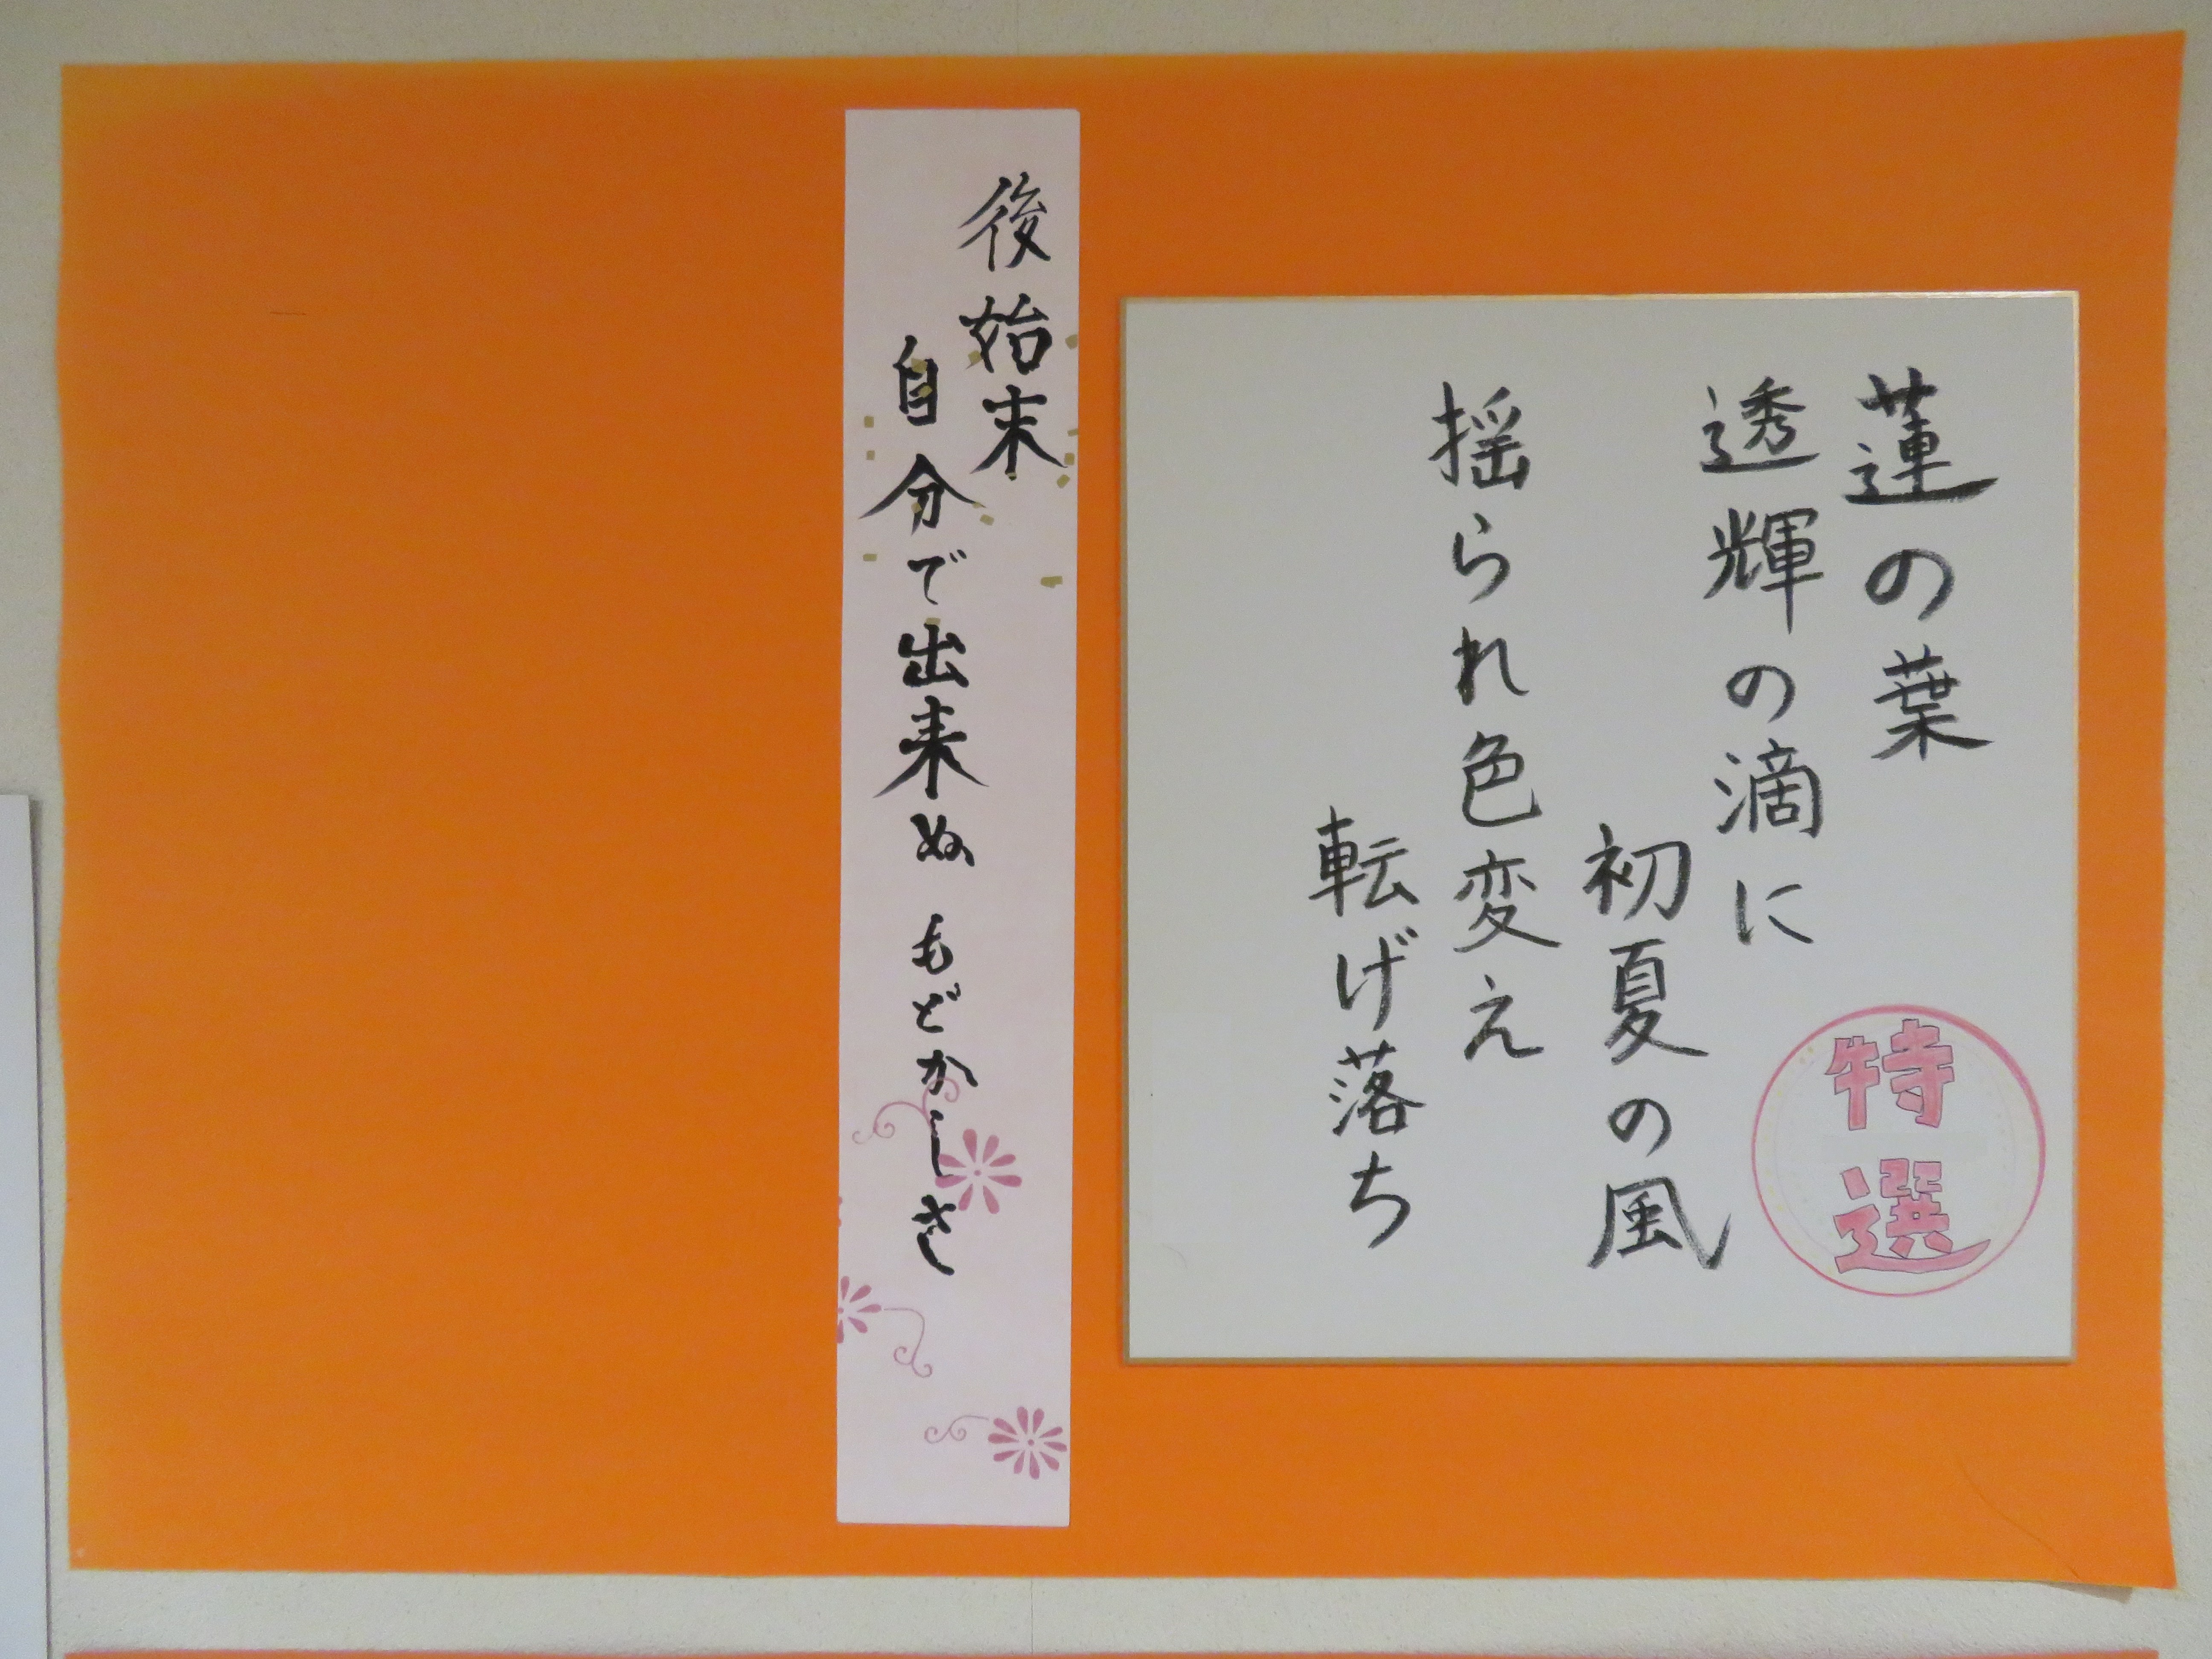 蓮の葉
透輝の滴に
初夏の風
揺られ色変え
転げ落ち
特選
後始末
自分で出来ぬ もどかしさ